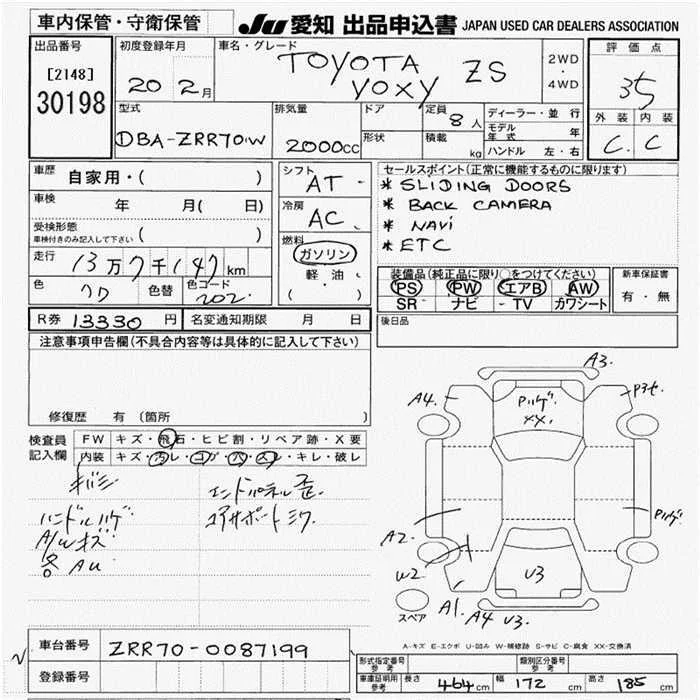 車内保管・守衛保管
JU 愛知 出品申込書 JAPAN USED CAR DEALERS ASSOCIATION
出品番号
[2148]
30198
初度登録年月
20 2月
車名・グレード
TOYOTA VOXY ZS
2WD
・
4WD
評価点
35
外装 内装
C. C
型式
DBA-ZRR70W
排気量
2000cc
ドア
形状
定員
8人
積載
kg
ディーラー・並行
モデル年式 年
ハンドル 左・右
車歴 自家用・( )
車検 年 月( 日)
受検形態
車検付きのみ記入して下さい ( )
走行 13万7千147km
色 クロ 色替 色コード 202.
シフト
AT
冷房
AC
燃料
ガソリン
軽・油
( ・ )
セールスポイント(正常に機能するものに限ります)
* SLIDING DOORS
* BACK CAMERA
* NAVi
* ETC
装備品(純正品に限り○をつけてください)
PS PW エアB AW
SR ナビ TV カワシート
新車保証書
有・無
R券 13330 円 名変通知期限 月 日
後日品
注意事項申告欄(不具合内容等は具体的に記入して下さい)
修復歴 有(箇所 )
検査員
記入欄
FW キズ・飛石・ヒビ割・リペア跡・X要
内装 キズ・汚レ・コゲ・穴・スレ・キレ・破レ
キバミ
ハンドルハゲ
A/Wキズ
各AU
エンドパネル歪
コアサポートミワ
A3.
A4.
Pハゲ.
XX.
Pハゲ
A2.
W2
U3
A1.
A4 U3.
スペア
A-キズ E-エクボ U-凹み W-補修跡 S-サビ C-腐食 XX-交換済
車台番号 ZRR70-0087199
登録番号
形式指定番号
参考
類別区分番号
参考
車庫証明用
参考
長さ 464cm 幅 172cm 高さ 185cm